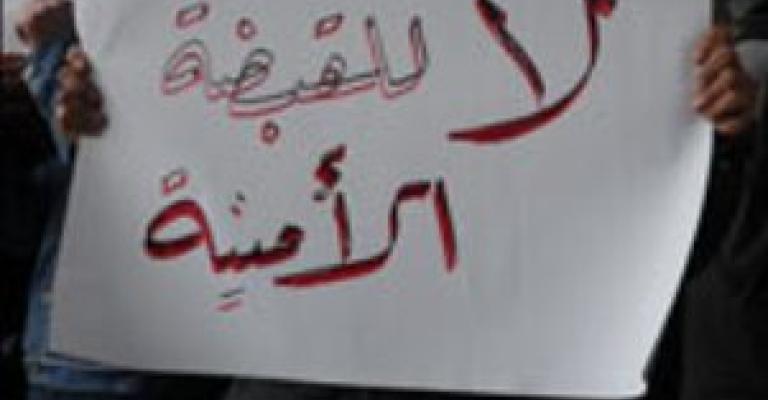 لا للقبضة
الأمنية